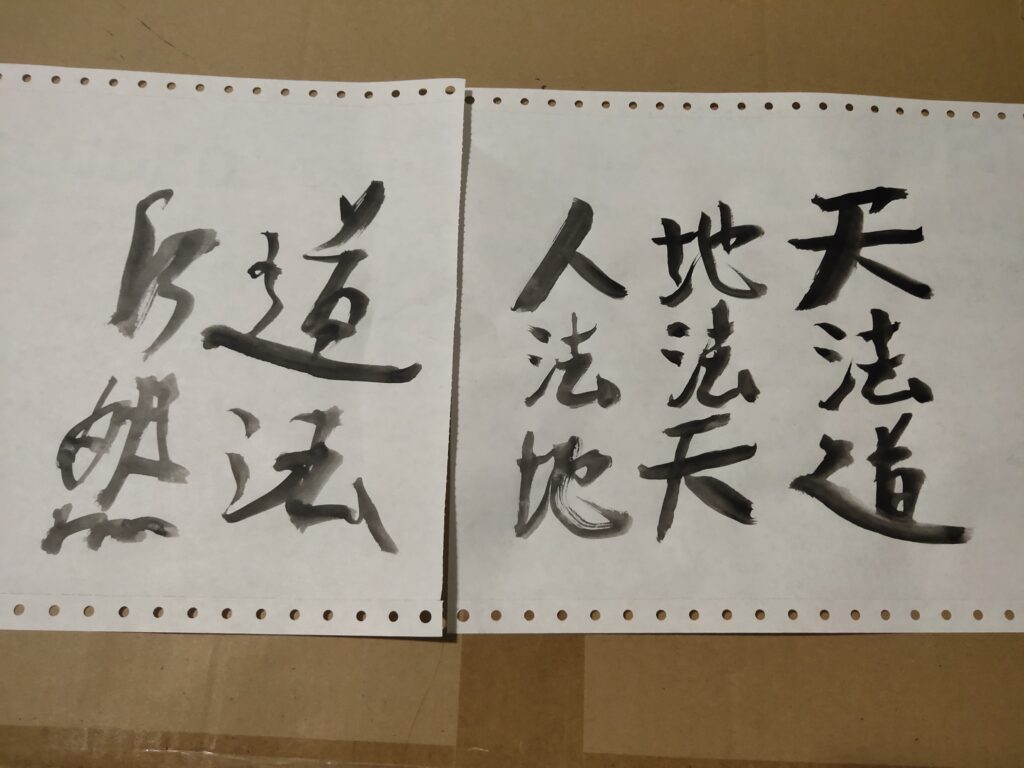 天法道
地法天
人法地
道法
自然